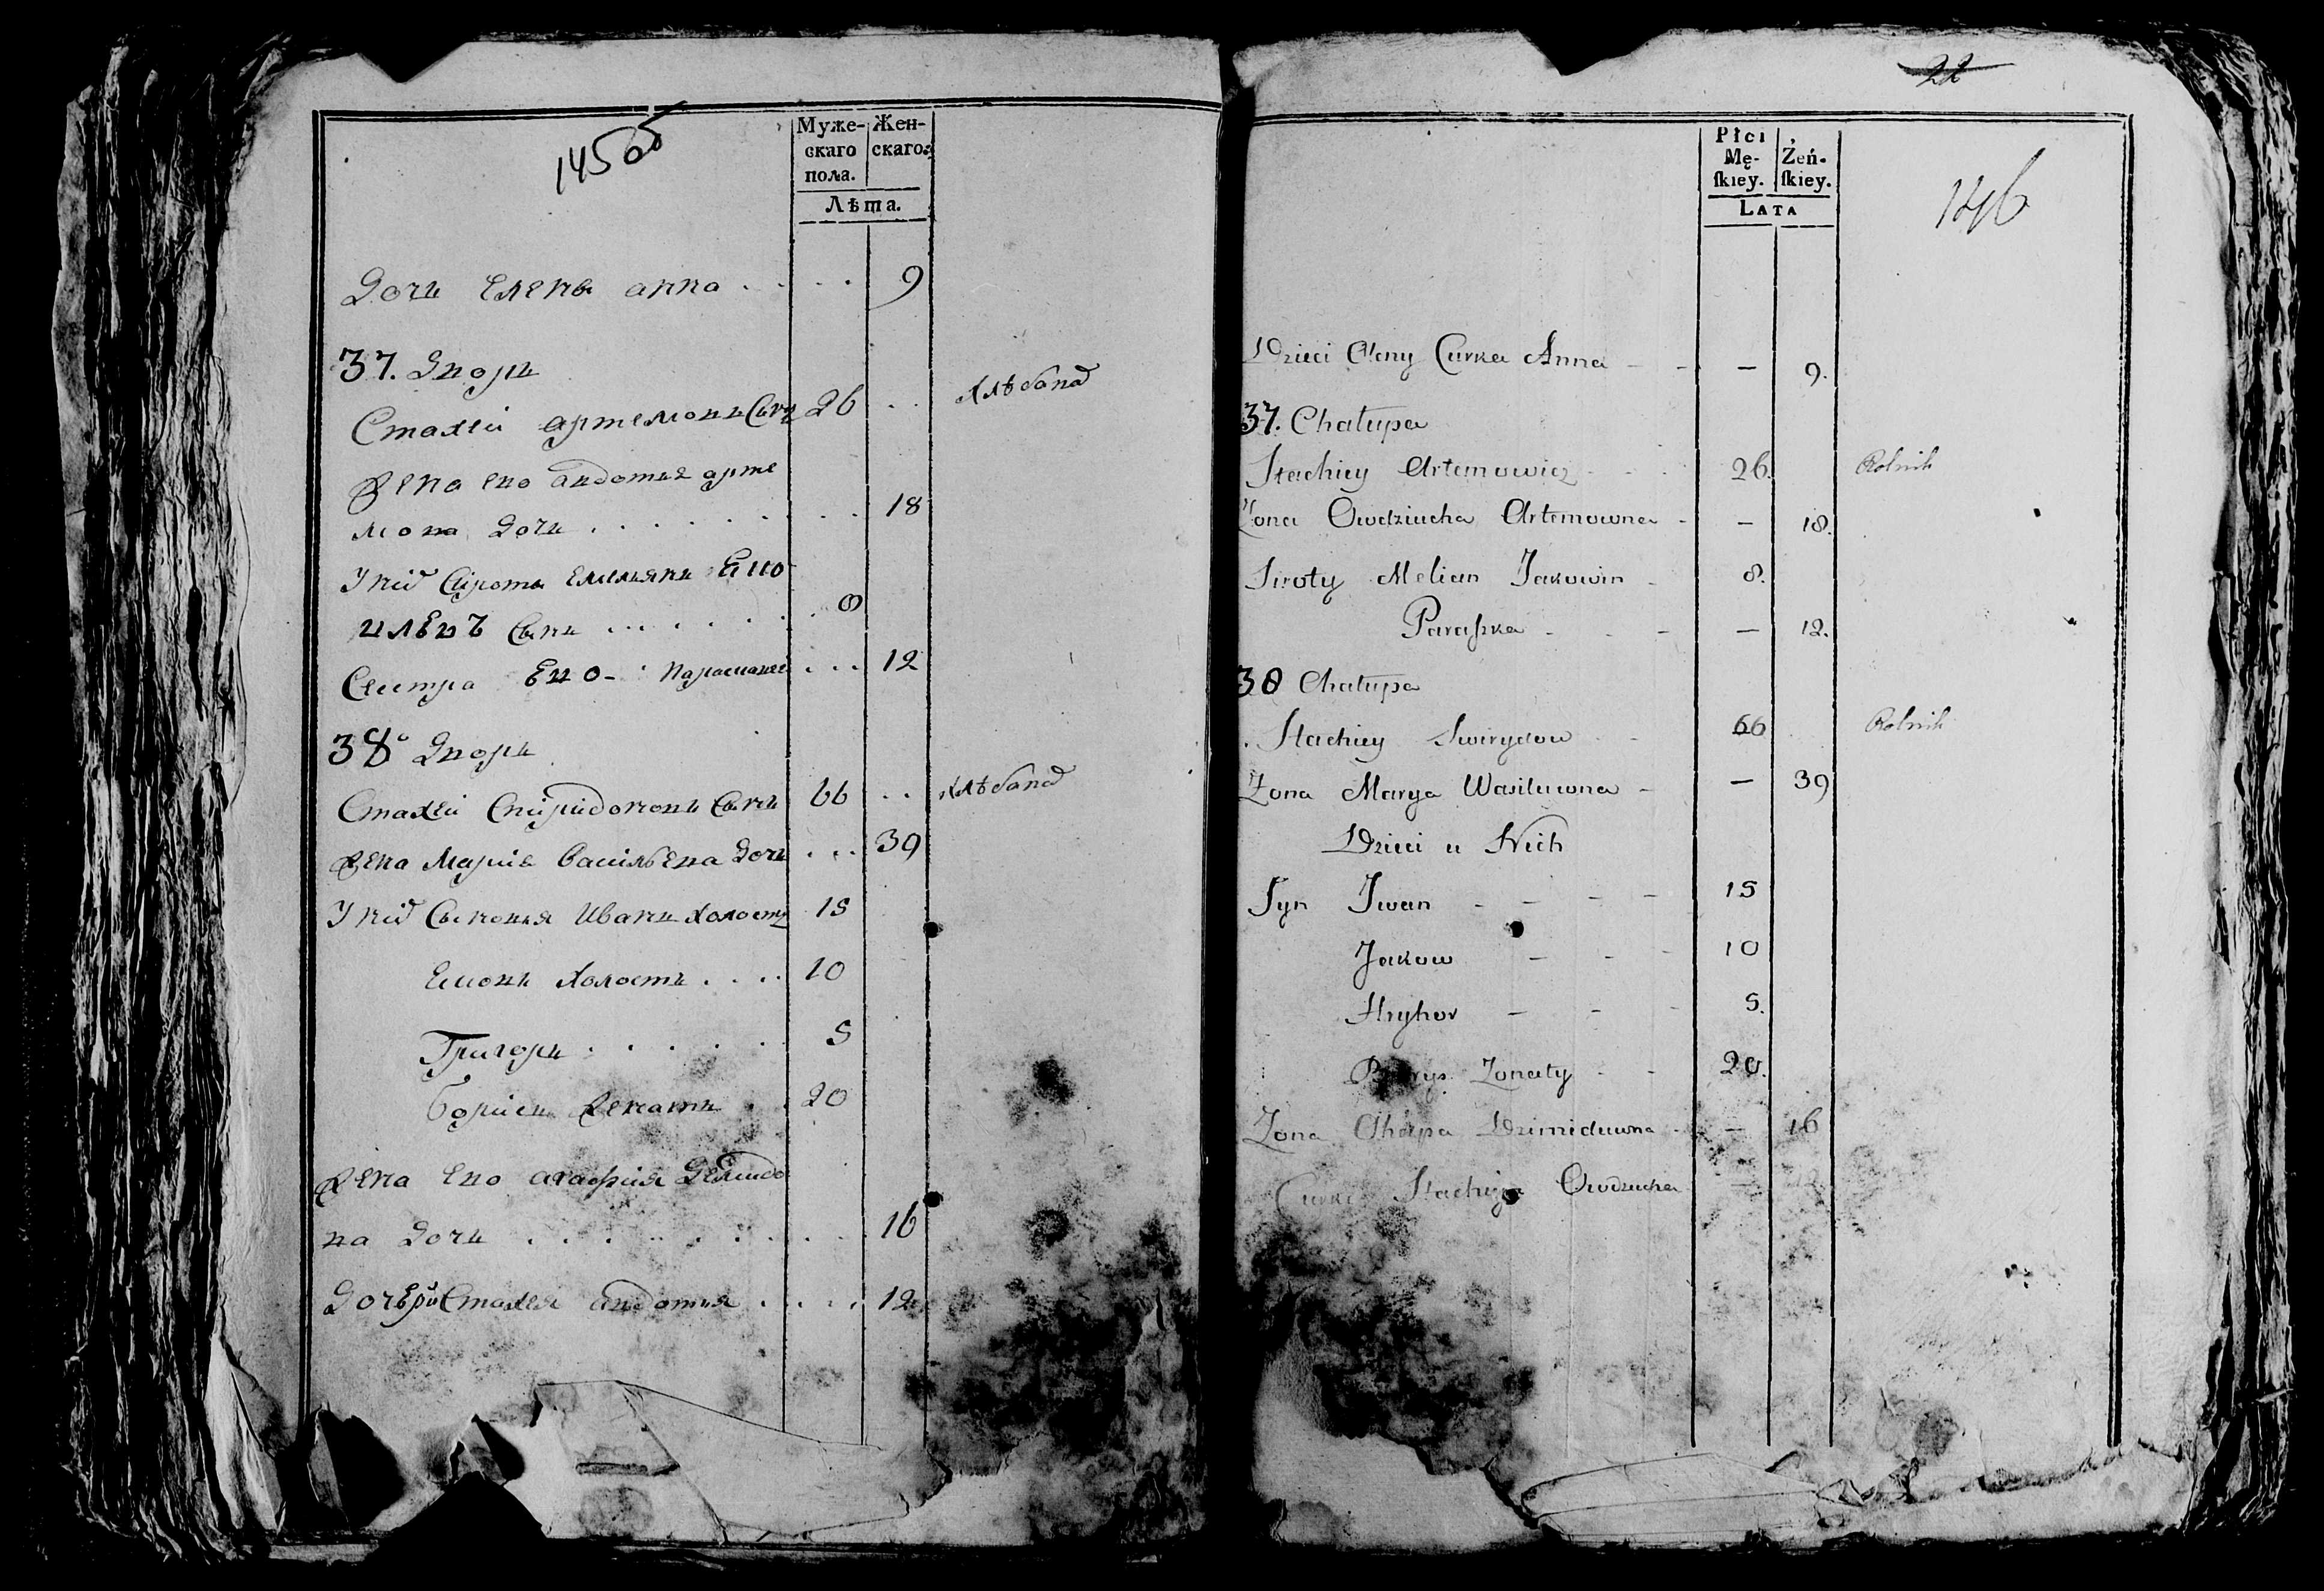 145об
Муже- Жен-
скаго скаго.
пола.
Лѣта.
Дочь Елены анна . . . . 9
37. Дворъ
Стахей артемовъ Сынъ 26 . . хлѣбопа
Жена его авдотья арте
мова дочь . . . . . . . . 18
У нихъ Сирота Емельянъ
Сынъ . . . . . . 8
Сестра Его - Парасковея . . . 12
38 Дворъ
Стахей Спиридоновъ Сынъ 66 . . хлѣбопа
Жена Марья Васильева дочь . . . 39
У нихъ Сыновья Иванъ холостъ 15
холостъ . . . . 10
Григорь . . . . . 5
Борисъ Женатъ . . 20
Жена Его агафия Демидо
ва дочь . . . . . . . . 16
Дочери Стахея авдотья . . . . 12
22
146
Płci
Mę- Żeń-
ſkiey. ſkiey.
Lata
Dzieci Oleny Curka Anna - - — 9.
37. Chałupa
Stachiey Artemowicz - - - 26. Rolnik
Zona Owdziucha Artemowna - — 18.
Siroty Melian Jakowin - 8.
Paraſzka - - - — 12.
38 Chałupa
Stachiey Swirydow - - 66 Rolnik
Zona Marya Wasiluwna - — 39
Dzieci u Nich
Syn Iwan - - - - 15
Jakow - - - 10
Hryhor - - - 5.
Borys Zonaty - - 20.
Zona Ahapa Dzimiduwna - — 16
Curki Stachieja Owdziucha — 12.